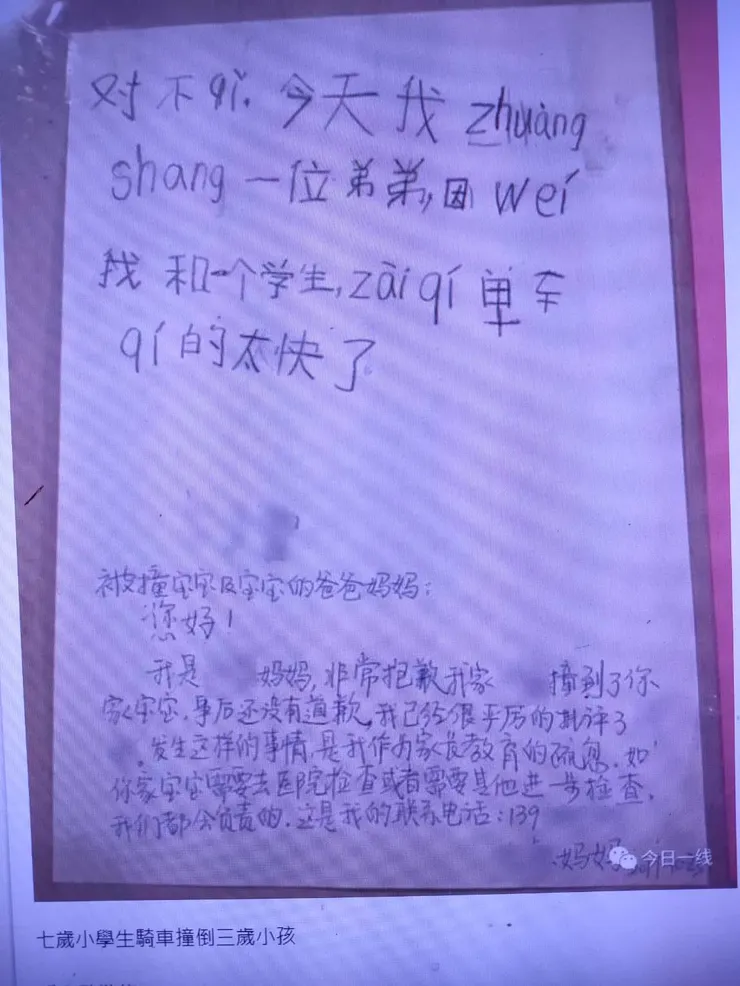 对不qǐ.今天我 zhuàng
shang 一位弟弟,因 wéi
我和一个学生,zài qí 单车
qí 的太快了
被撞宝宝及宝宝的爸爸妈妈:
您好!
我是 妈妈,非常抱歉我家 撞到了你
家宝宝,事后还没有道歉,我已经很严厉的批评了
.发生这样的事情,是我作为家长教育的疏忽.如
你家宝宝需要去医院检查或者需要其他进一步检查,
我们都会负责的.这是我的联系电话:139
妈妈
今日一线
七歲小學生騎車撞倒三歲小孩